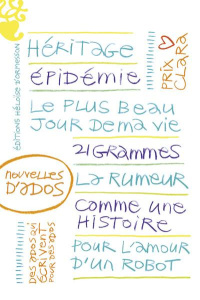 ÉDITIONS HÉLOÏSE D'ORMESSON
HÉRITAGE
ÉPIDÉMIE
PRIX
CLARA
LE PLUS BEAU
JOUR DE MA VIE
21 GRAMMES
NOUVELLES
D'ADOS
LA RUMEUR
COMME UNE
HISTOIRE
DES ADOS QUI
ÉCRIVENT
POUR DES ADOS
POUR L'AMOUR
D'UN ROBOT